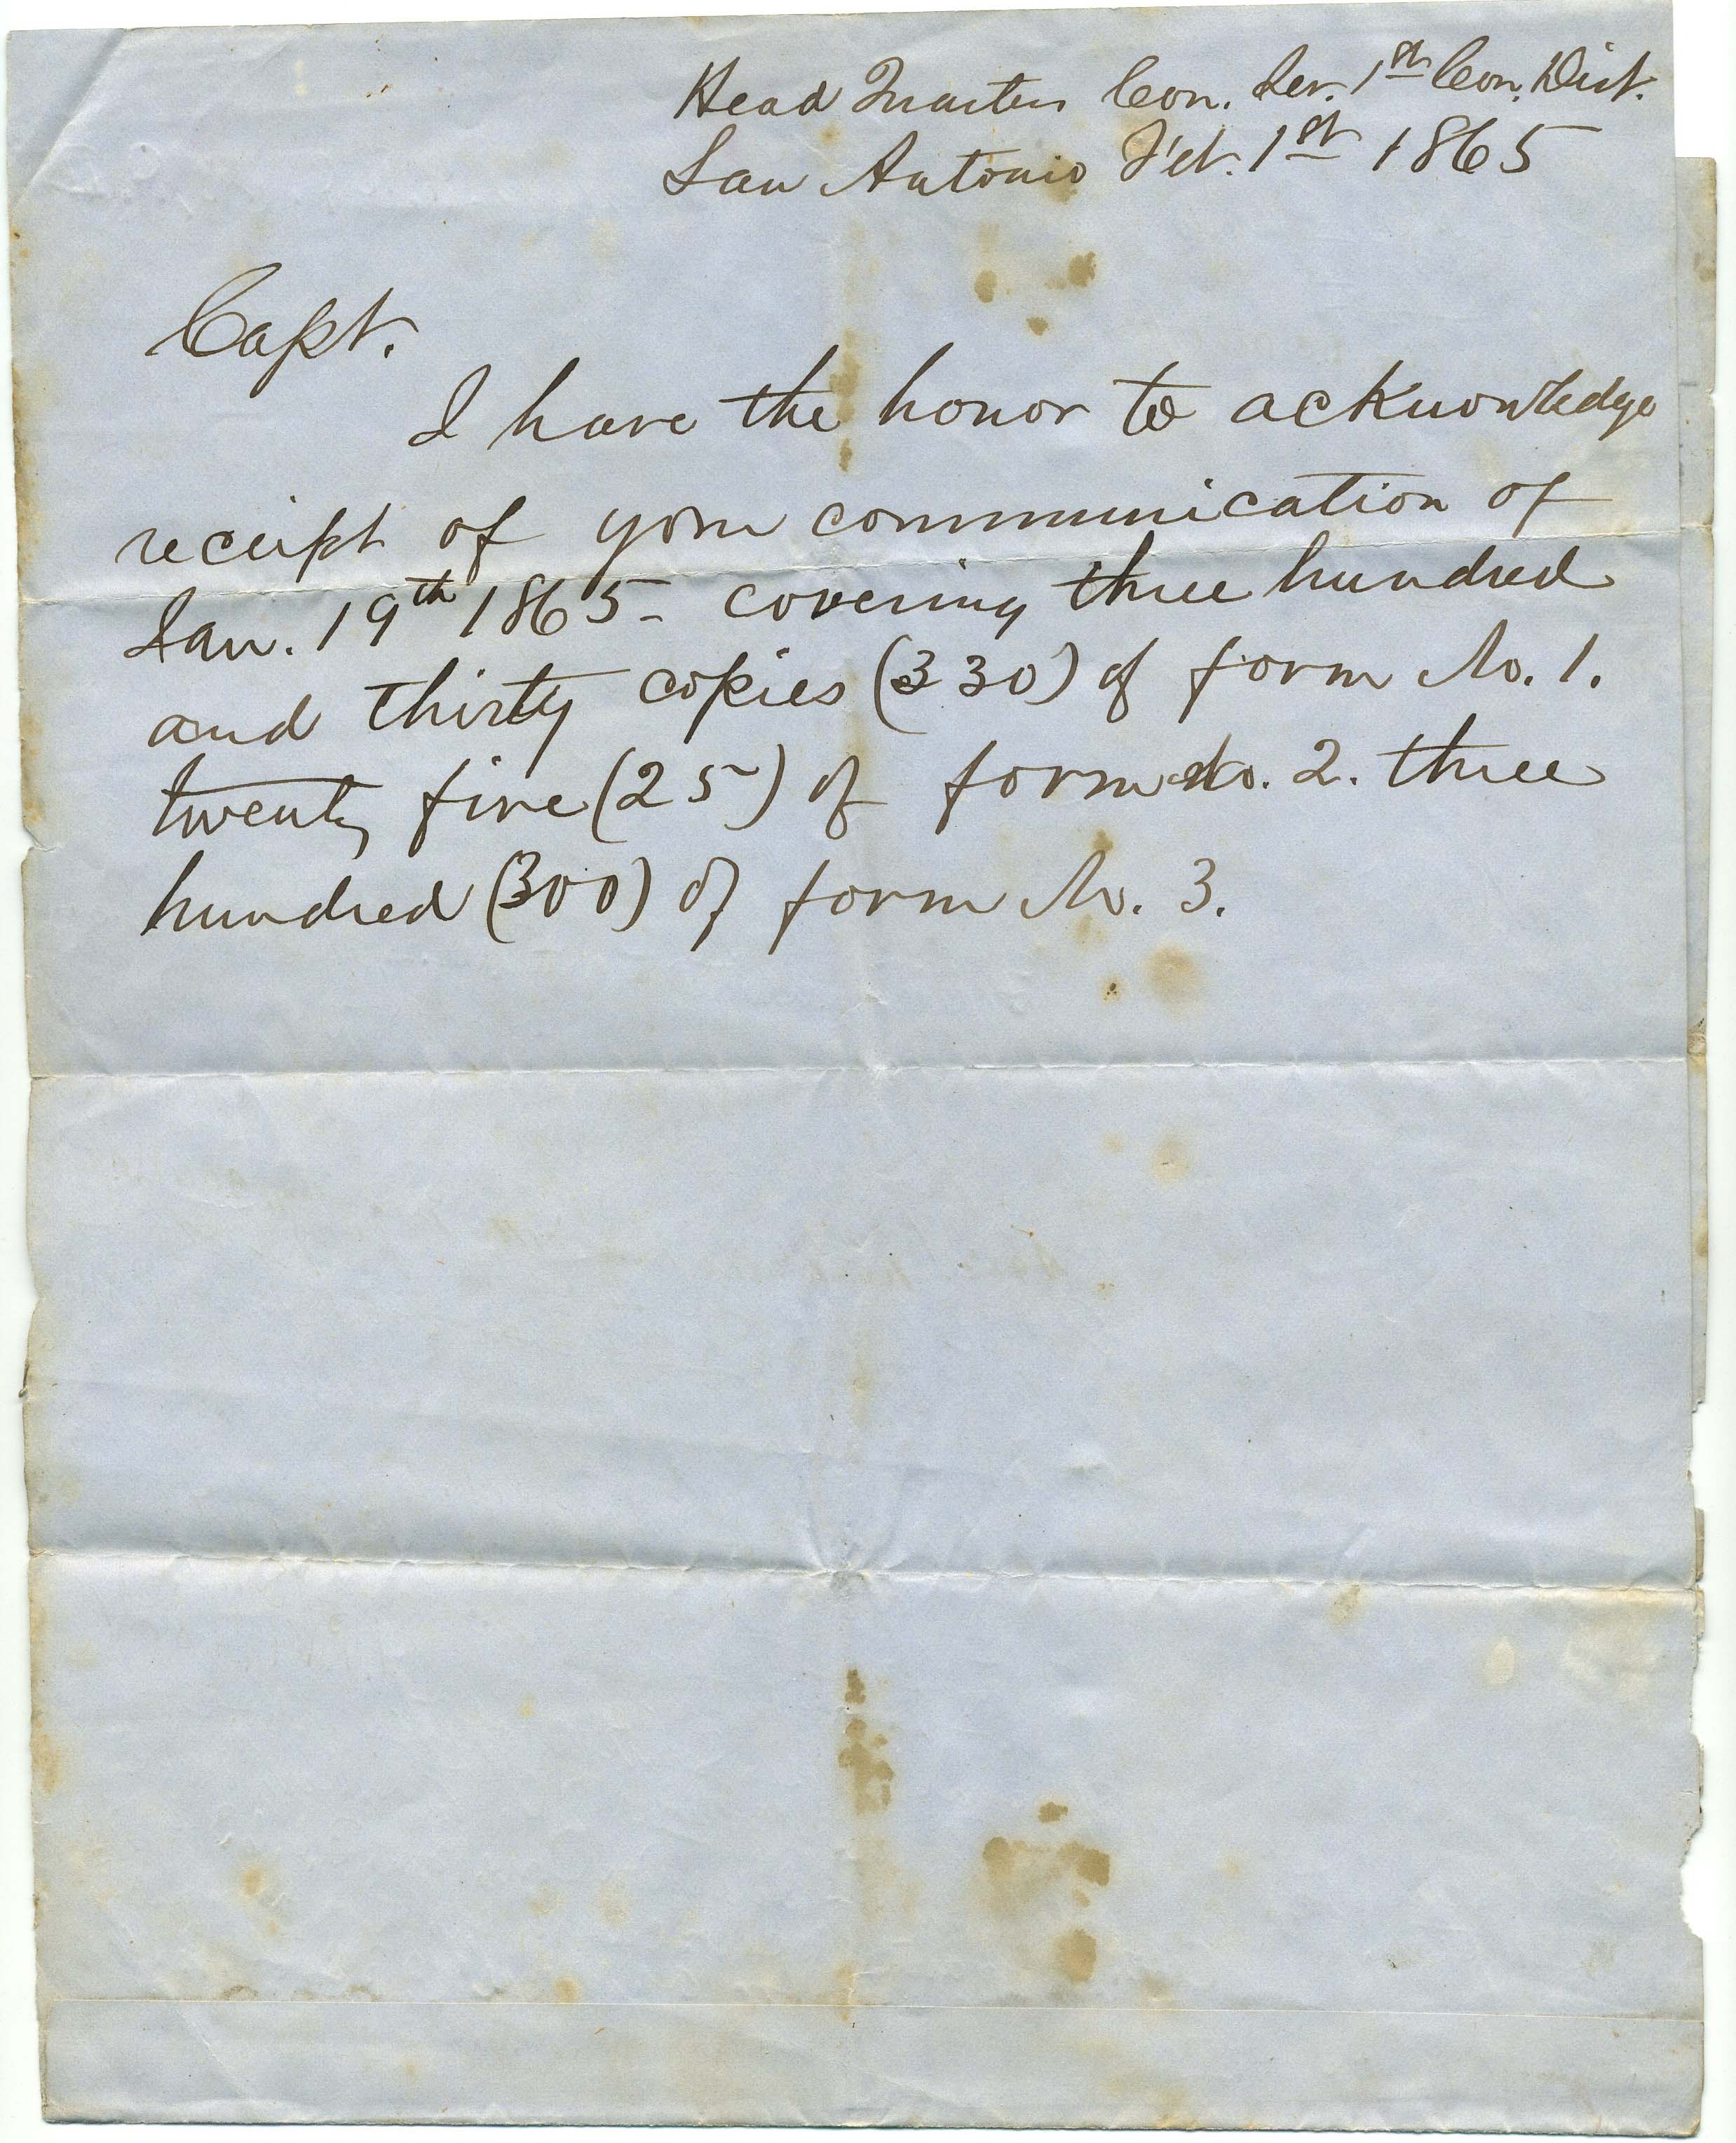 Head Quarters Con. Ser. 1st Con. Dist.
San Antonio Feb. 1st 1865
Capt.
I have the honor to acknowledge
receipt of your communication of
Jan. 19th 1865 - covering three hundred
and thirty copies (330) of form No. 1.
twenty five (25) of form No. 2. three
hundred (300) of form No. 3.